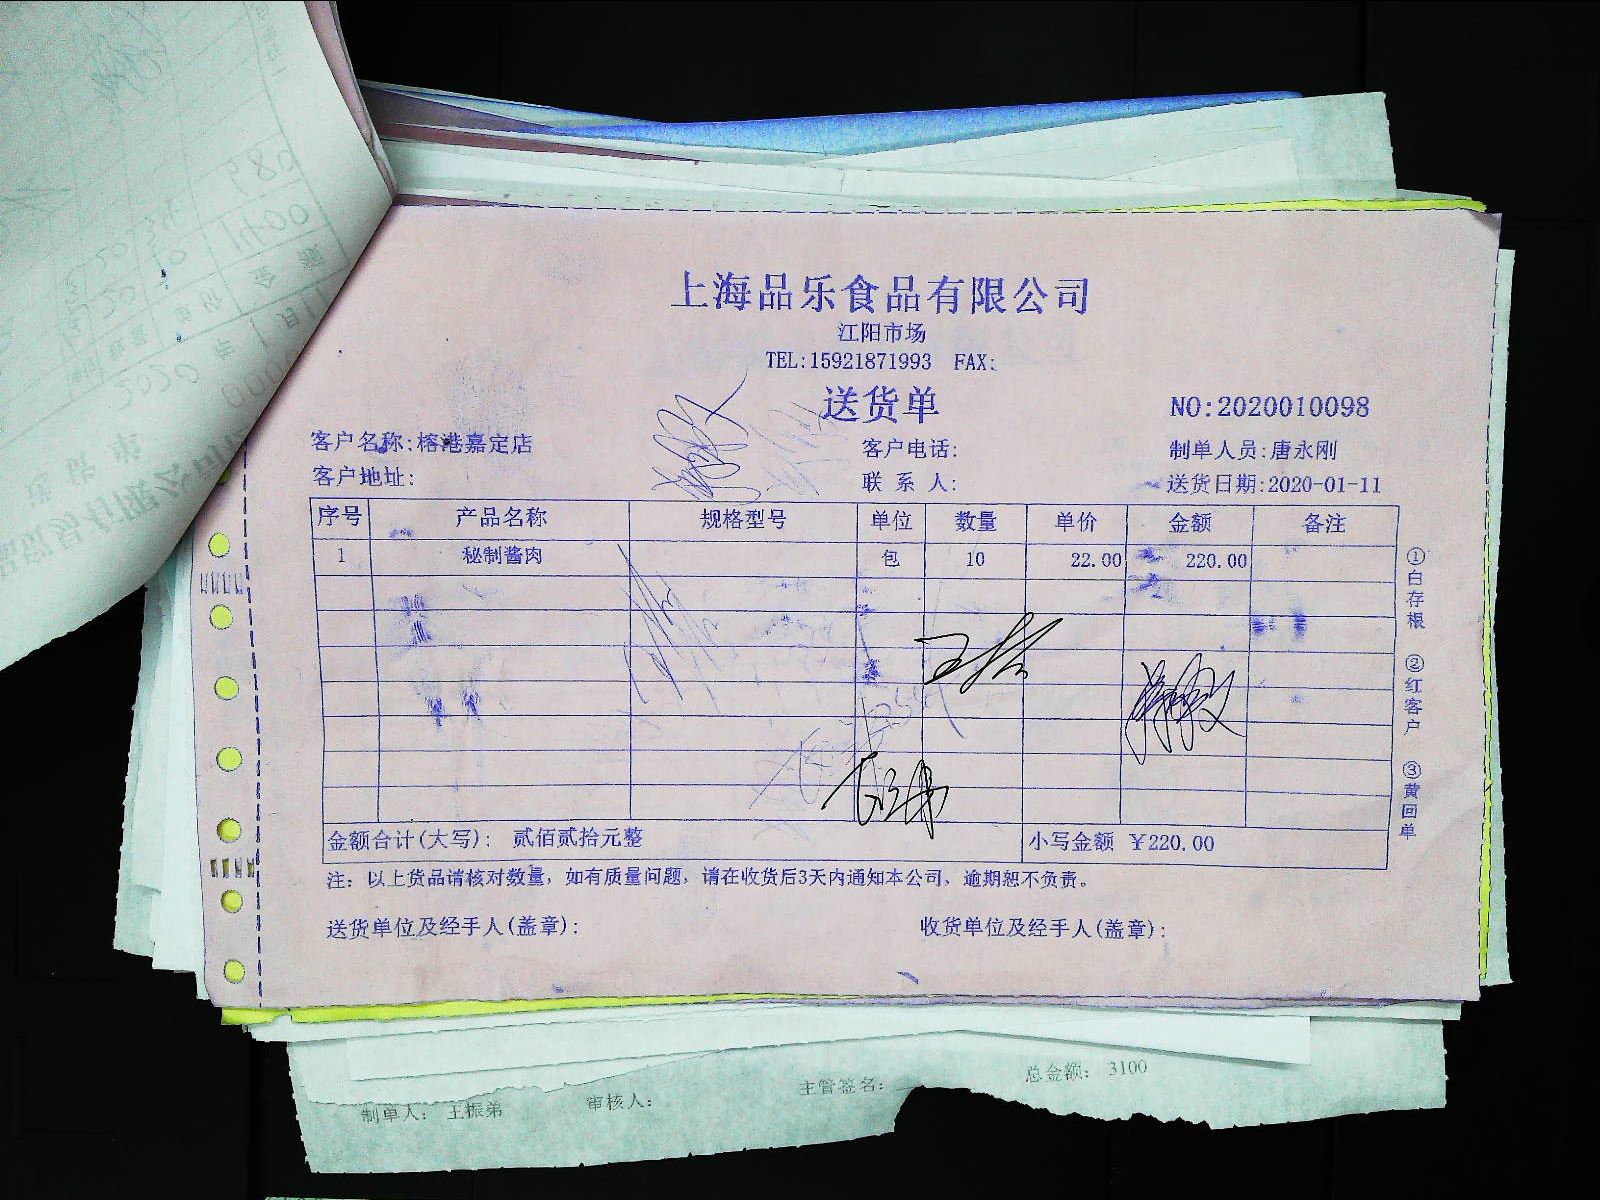 上海品乐食品有限公司
江阳市场
TEL:15921871993 FAX:
送货单
NO:2020010098
客户名称:榕港嘉定店 客户电话: 制单人员:唐永刚
客户地址: 联系人: 送货日期:2020-01-11
序号 产品名称 规格型号 单位 数量 单价 金额 备注
1 秘制酱肉 包 10 22.00 220.00
金额合计(大写): 贰佰贰拾元整 小写金额 ￥220.00
注: 以上货品请核对数量, 如有质量问题, 请在收货后3天内通知本公司, 逾期恕不负责。
送货单位及经手人(盖章): 收货单位及经手人(盖章):
①白存根 ②红客户 ③黄回单
制单人: 王振弟 审核人: 主管签名: 总金额: 3100